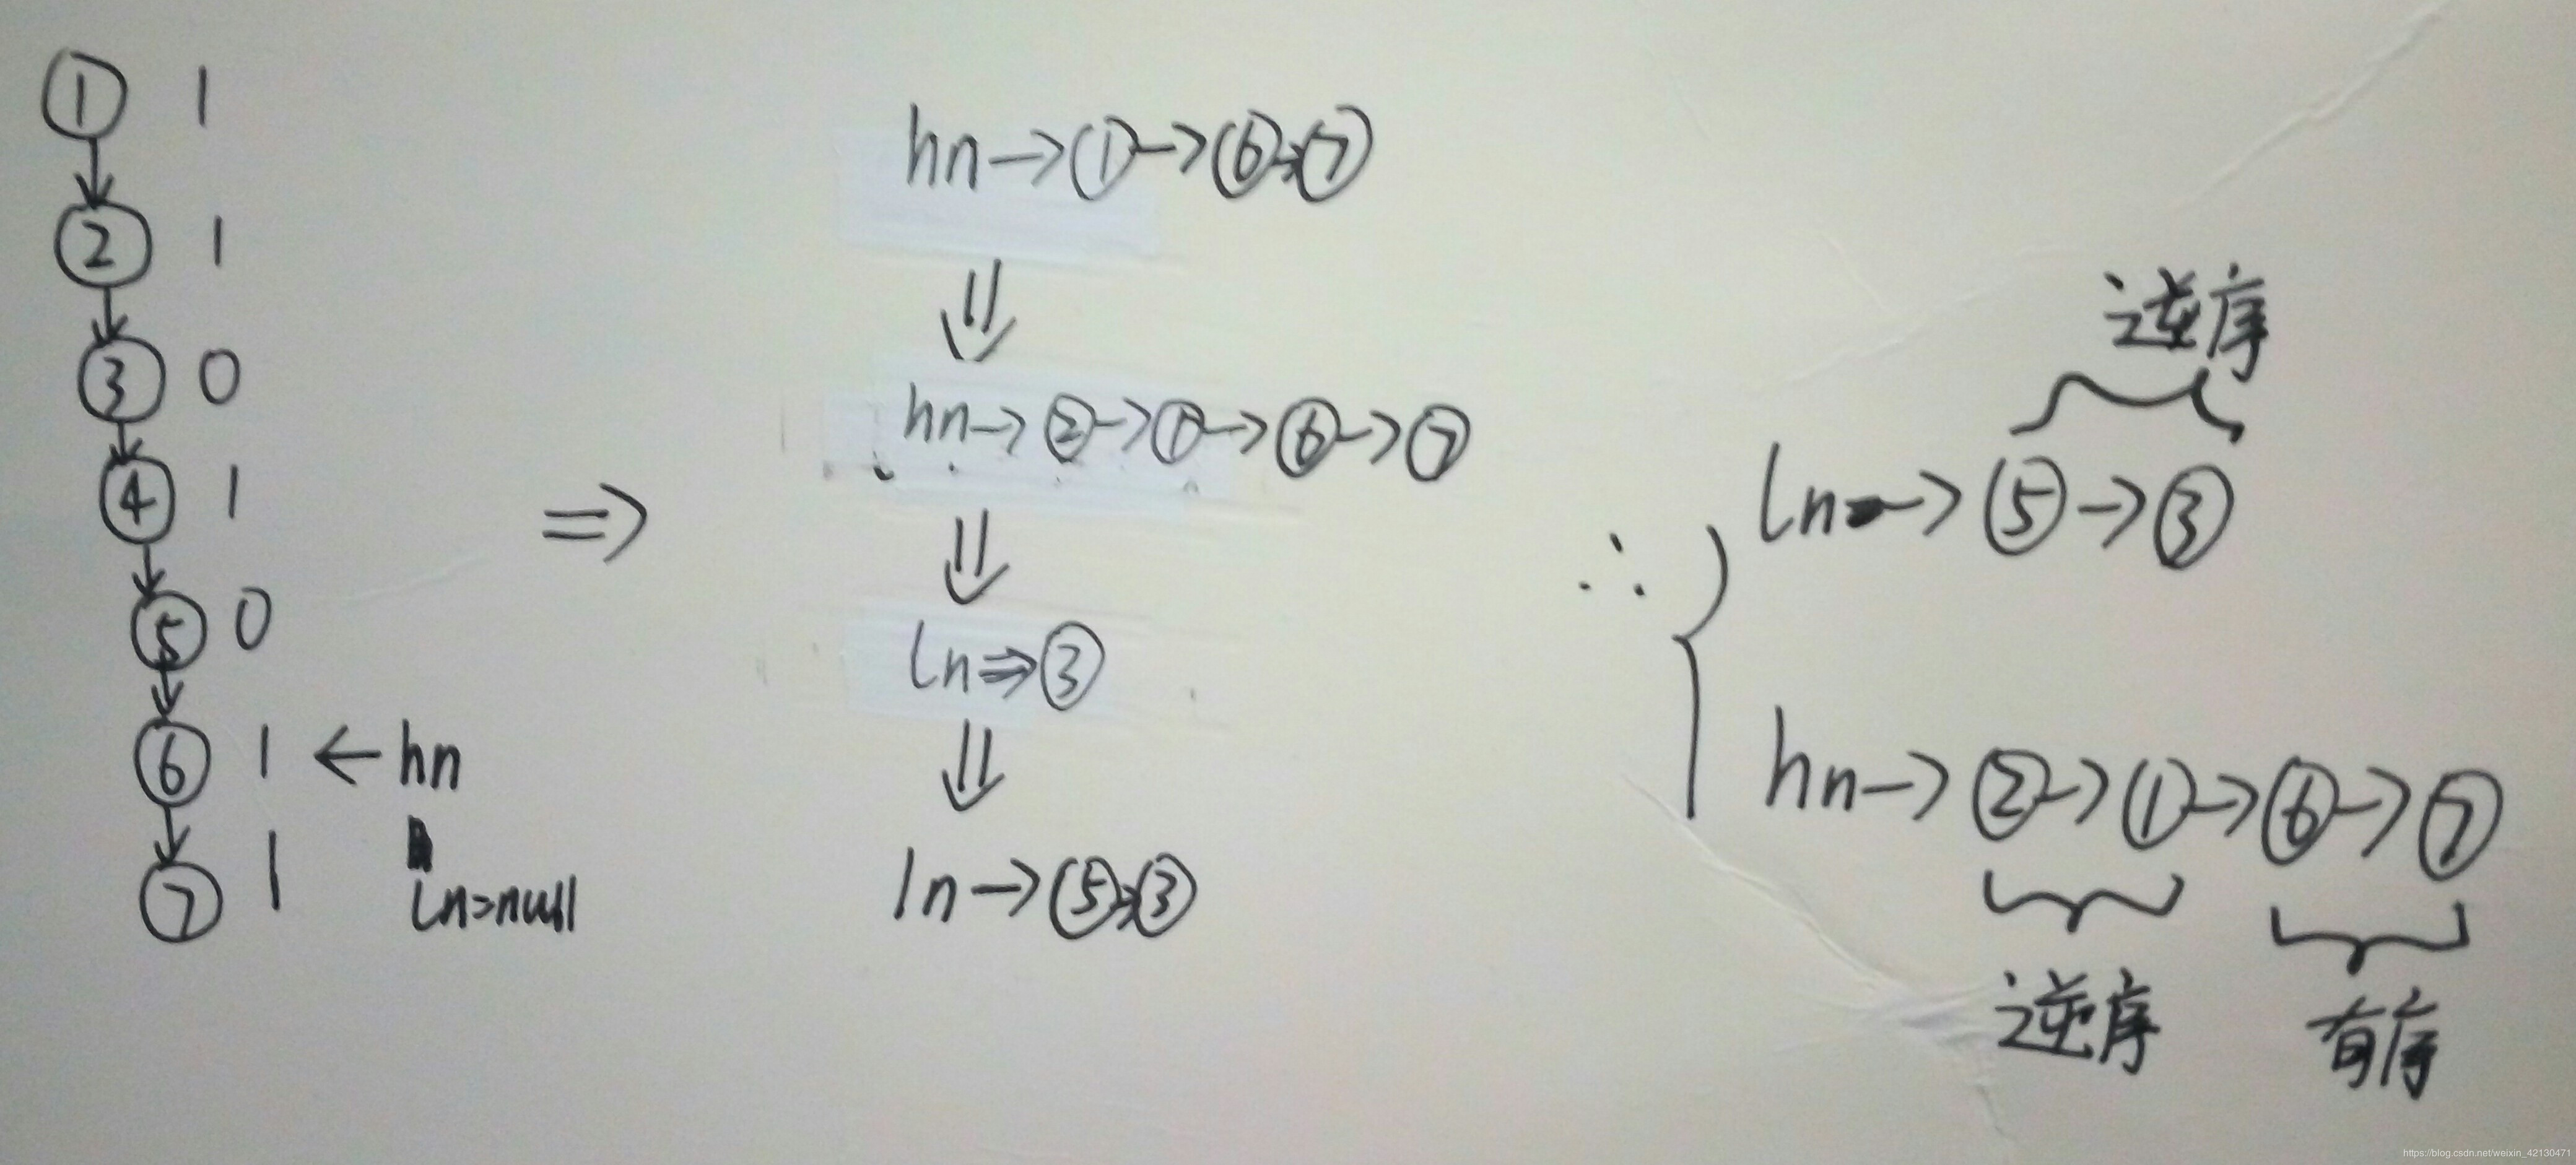 ① 1
② 1
③ 0
④ 1
⑤ 0
⑥ 1 ← hn
⑦ 1
ln=null
⇒
hn→①→⑥→⑦
⇓
hn→②→①→⑥→⑦
⇓
ln⇒③
⇓
ln→⑤→③
∴
逆序
ln→⑤→③
hn→②→①→⑥→⑦
逆序 有序
https://blog.csdn.net/weixin_42130471